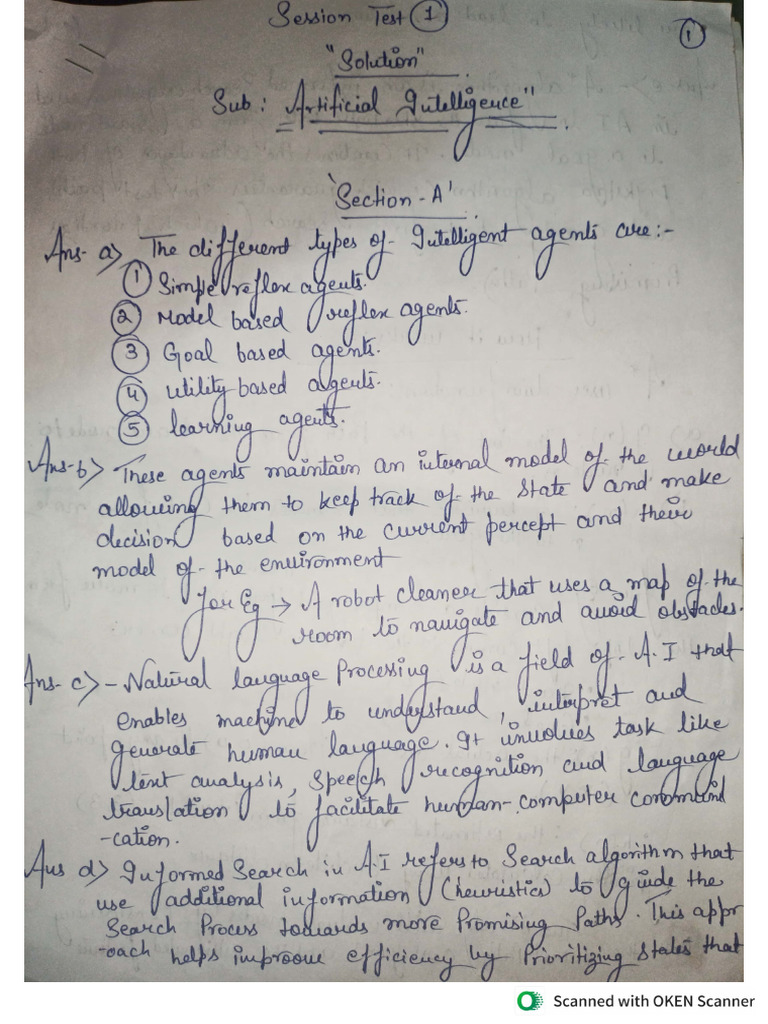 Session Test 1
1
"Solution"
Sub: Artificial Intelligence"
'Section-A'
Ans- a) The different types of Intelligent agents are:-
1 Simple reflex agents.
2 Model based reflex agents.
3 Goal based agents.
4 utility based agents.
5 learning agents.
Ans-b) These agents maintain an internal model of the world
allowing them to keep track of the state and make
decision based on the current percept and their
model of the environment
for Eg → A robot cleaner that uses a map of the
room to navigate and avoid obstacles.
Ans- c) - Natural language Processing is a field of A.I that
enables machine to understand, interpret and
generate human language. It involves task like
text analysis, speech recognition and language
translation to facilitate human-computer communi
-cation.
Ans d) Informed Search in A.I refers to Search algorithm that
use additional information (heuristics) to guide the
Search Process towards more Promising Paths. This appr
-oach helps improve efficiency by Prioritizing states that
Scanned with OKEN Scanner